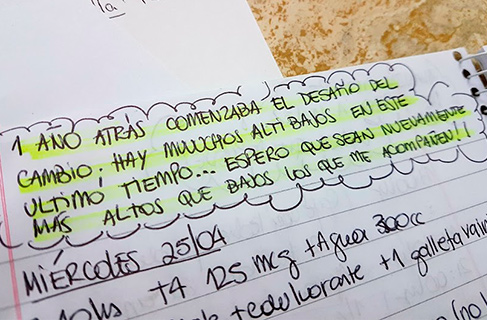 1 AÑO ATRÁS COMENZABA EL DESAÑO DEL
CAMBIO; HAY MUUCHOS ALTIBAJOS EN ESTE
ULTIMO TIEMPO... ESPERO QUE SEAN NUEVAMENTE
MÁS ALTOS QUE BAJOS LOS QUE ME ACOMPAÑEN!!
MIÉRCOLES 25/04
T4 125 mcg + Agua 300cc
+ edulcorante + 1 galleta